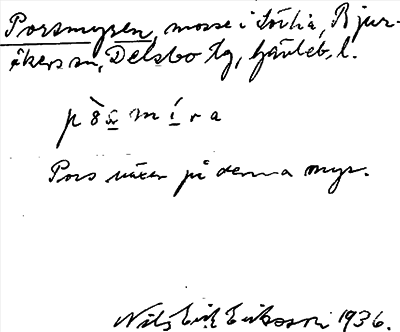 Porsmyren, mosse i Sörlia, Bjur-
åkers sn, Delsbo tg, Gävleb. l.
Pors växer på denna myr.
Nils Erik Eriksson 1936.